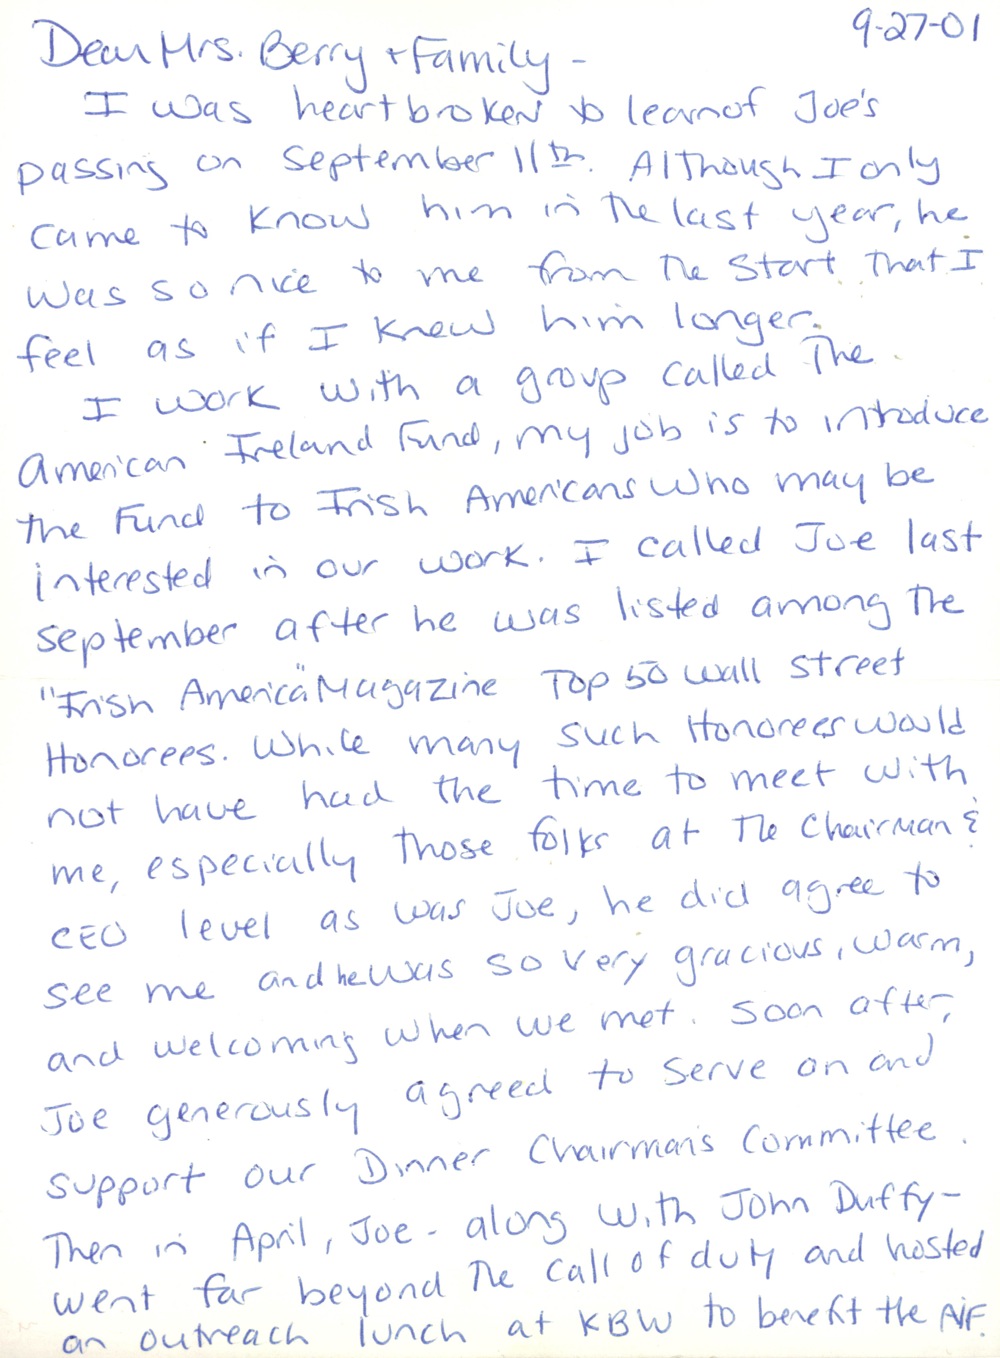 9-27-01
Dear Mrs. Berry + Family -
I was heartbroken to learn of Joe's
passing on September 11th. Although I only
came to know him in the last year, he
was so nice to me from the start that I
feel as if I knew him longer.
I work with a group called The
American Ireland Fund, my job is to introduce
the Fund to Irish Americans who may be
interested in our work. I called Joe last
September after he was listed among the
"Irish America" Magazine Top 50 Wall Street
Honorees. While many such Honorees would
not have had the time to meet with
me, especially those folks at the Chairman &
CEO level as was Joe, he did agree to
see me and he was so very gracious, warm,
and welcoming when we met. Soon after,
Joe generously agreed to serve on and
support our Dinner Chairman's Committee.
Then in April, Joe - along with John Duffy -
went far beyond the call of duty and hosted
an outreach lunch at KBW to benefit the AIF.